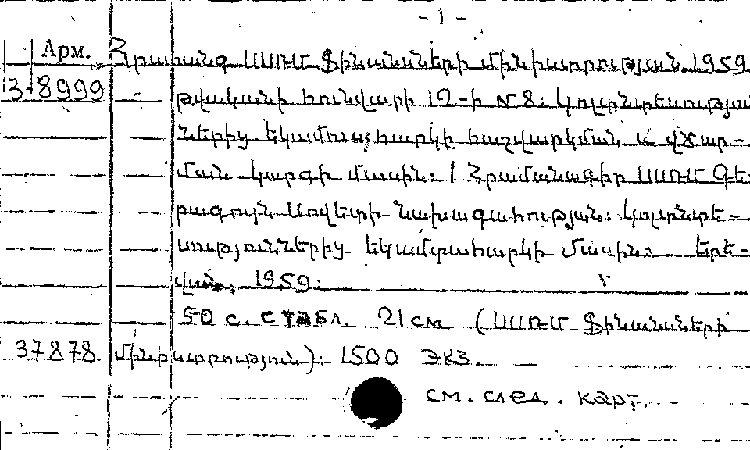 - 1 -
Арм. Հրահանգ ՍՍՌՄ Ֆինանսների մինիստրության 1959
3-8999 թվականի հունվարի 12-ի № 8: Կոլտնտեսություն
ներից եկամտահարկի հաշվարկման և վճար-
ման կարգի մասին: / Հրամանագիր ՍՍՌՄ Գե-
րագույն Սովետի Նախագահության: Կոլտնտե-
սություններից եկամտահարկի մասին: Երե-
վան, 1959.
50 с. с табл. 21 см (ՍՍՌՄ Ֆինանսների
37878 մինիստրություն): 1500 экз.
см. след. карт.